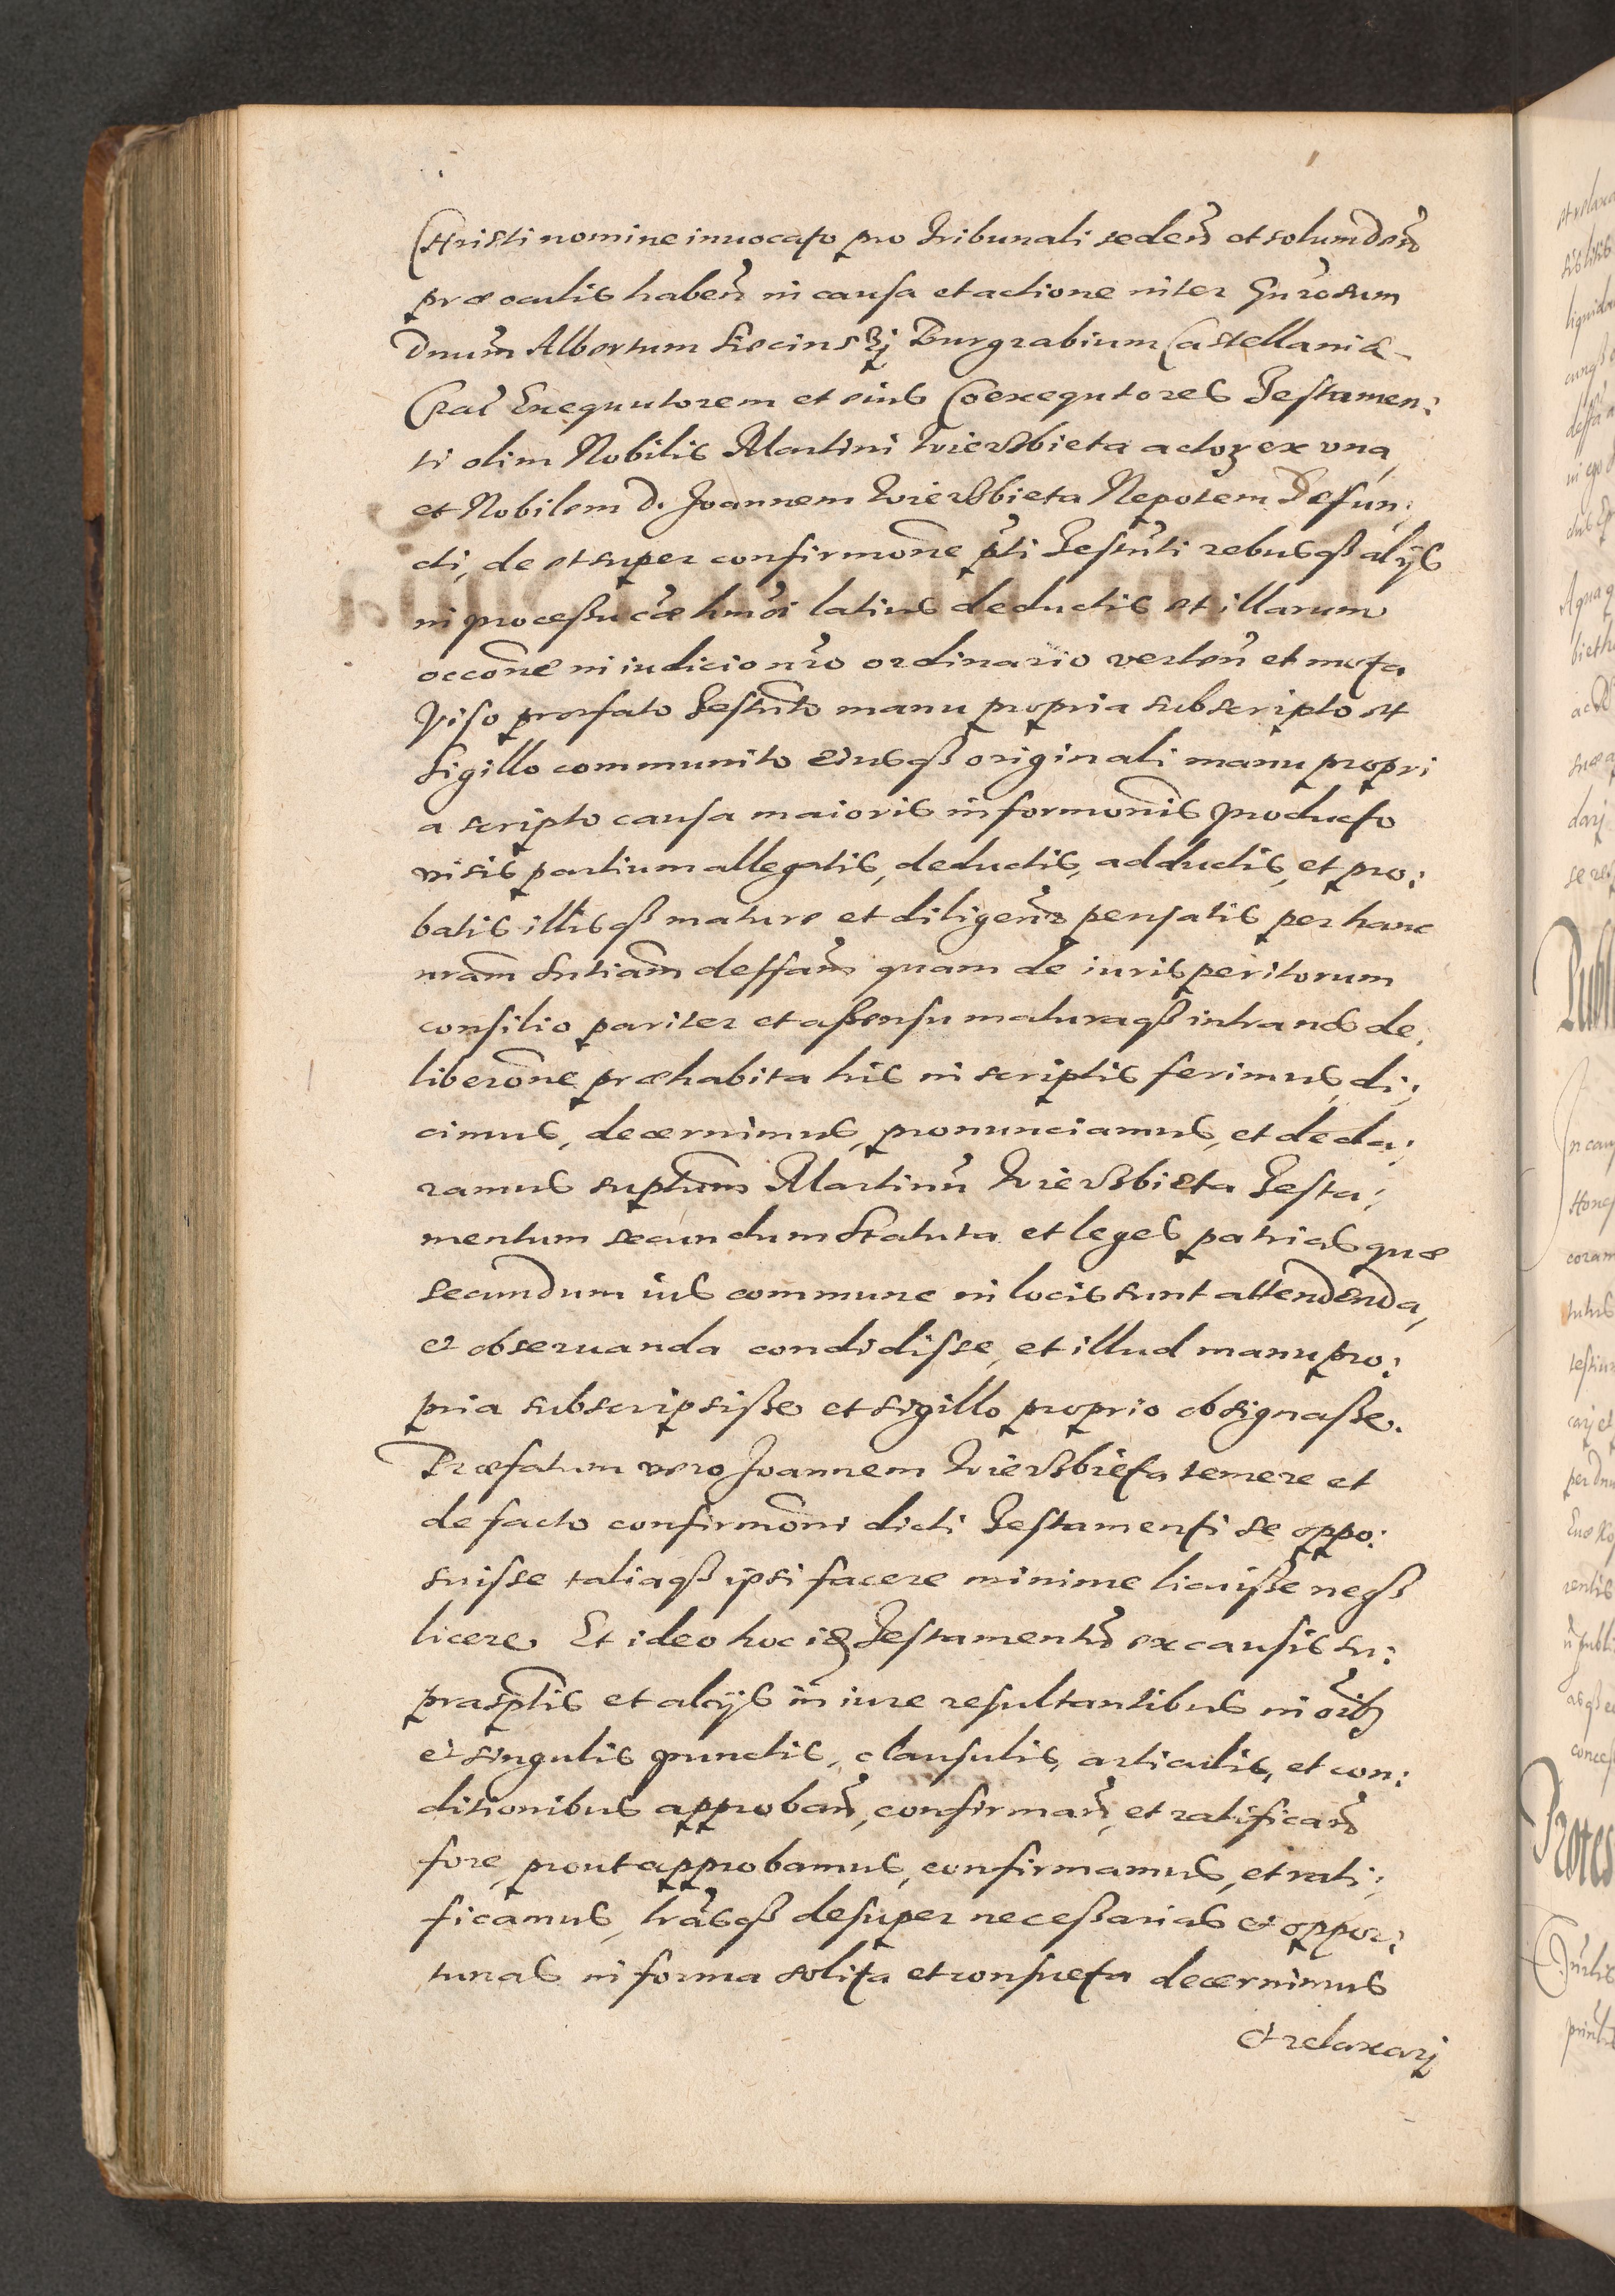 Christi nomine inuocato pro tribunali seden̄ et solum Deū
præ oculis haben̄ in causa et actione inter Gn̄rosum
Dnum̄ Albertum Siecinskÿ Burgrabium Castellaniæ
Crac̄ Exequutorem et eius Coexequtores Testamen:
ti olim Nobilis Martini Wierzbieta actorꝝ ex vna,
et Nobilem D. Joannem Wierzbieta Nepotem Defun:
cti, de et super confirmōne p̄ti Testm̄ti rebusqꝫ alijs
in processu cāæ hmōi latius deductis et illarum
occōne in iudicio nr̄o ordinario verten̄ et mota
Viso præfato Testm̄to manu propria subscripto et
sigillo communito eiusqꝫ originali manu propri
a scripto causa maioris informōnis producto
visis partium allegatis, deductis, adductis, et pro:
batis illisqꝫ mature et diligen̄r pensatis per hanc
nr̄am sn̄tiam deffam̄ quam de iurisperitorum
consilio pariter et assensu maturaqꝫ intra nos de:
liberōne præhabita his in scriptis ferimus, di:
cimus, decernimus, pronunciamus, et decla:
ramus suptum̄ Martinū Wierzbieta Testa:
mentum secundum Statuta et leges patrias quæ
secundum ius commune in locis sunt attendenda,
et obseruanda condidisse, et illud manu pro:
pria subscripsisse et sigillo proprio obsignasse.
Præfatum vero Joannem Wierzbieta temere et
de facto confirmōni dicti Testamenti se oppo:
suisse taliaqꝫ ipsi facere minime licuisse neqꝫ
licere. Et ideo hoc id Testamentū ex causis su:
prascptis et alijs in iure resultantibus in oīb3
et singulis punctis, clausulis, articulis, et con:
ditionibus approban̄, confirman̄, et ratifican̄
fore, prout approbamus, confirmamus, et rati:
ficamus, lr̄asqꝫ desuper necessarias et oppor:
tunas in forma solita et consueta decernimus
et relaxarj